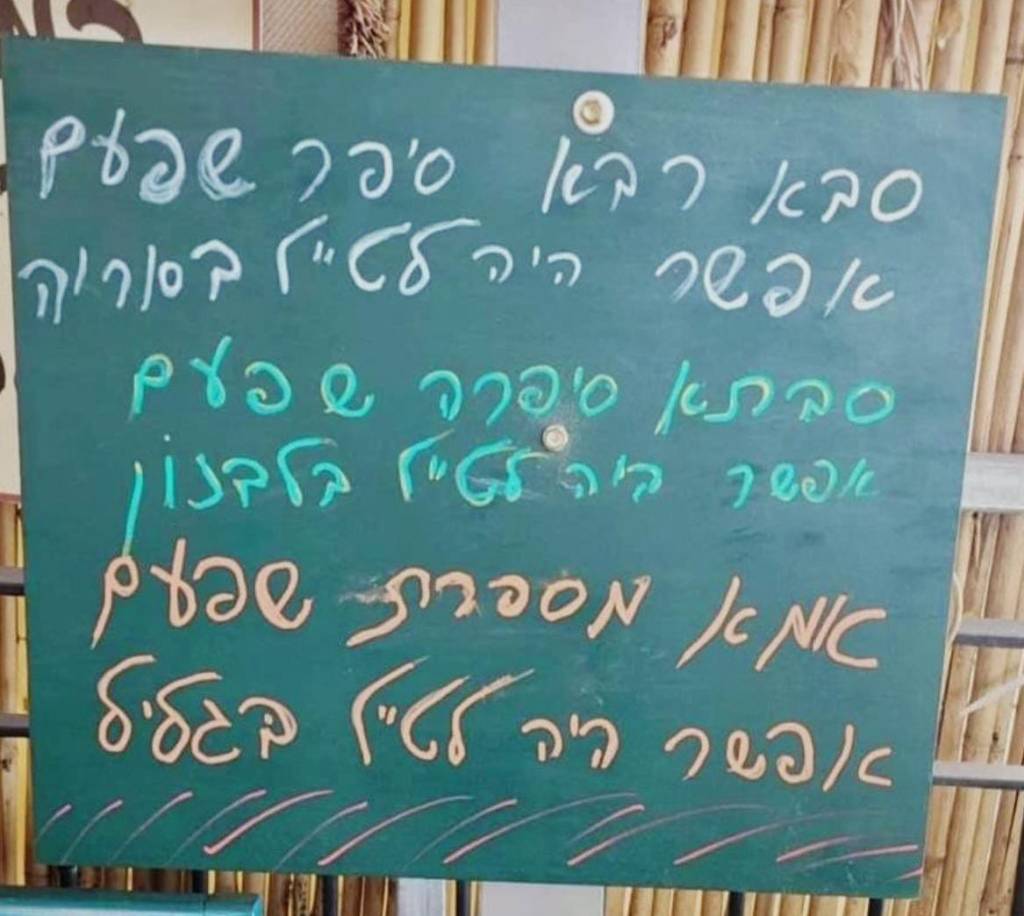 סבא רבא סיפר שפעם
אפשר היה לטייל בסוריה
סבתא סיפרה שפעם
אפשר היה לטייל בלבנון
אמא מספרת שפעם
אפשר היה לטייל בגליל